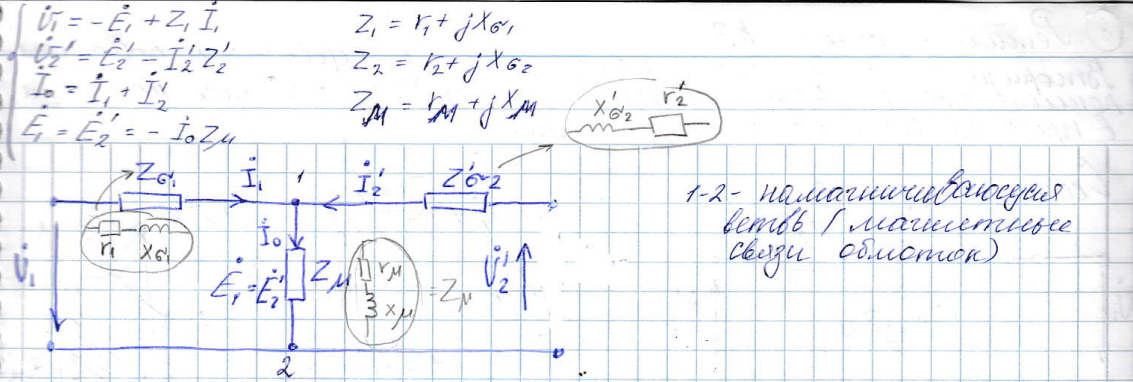 U̇₁ = -Ė₁ + Z₁ İ₁
U̇₂' = Ė₂' - İ₂' Z₂'
İ₀ = İ₁ + İ₂'
Ė₁ = Ė₂' = - İ₀ Zμ
Z₁ = r₁ + j Xσ₁
Z₂ = r₂ + j Xσ₂
Zμ = rμ + j Xμ
X'σ₂ r₂'
Zσ₁ İ₁ 1 İ₂' Z'σ2
r₁ Xσ₁
U̇₁
İ₀
Ė₁ = Ė₂' Zμ
rμ
Xμ
= Zμ
U̇₂'
2
1-2 - намагничивающая
ветвь (магнитные
связи обмоток)